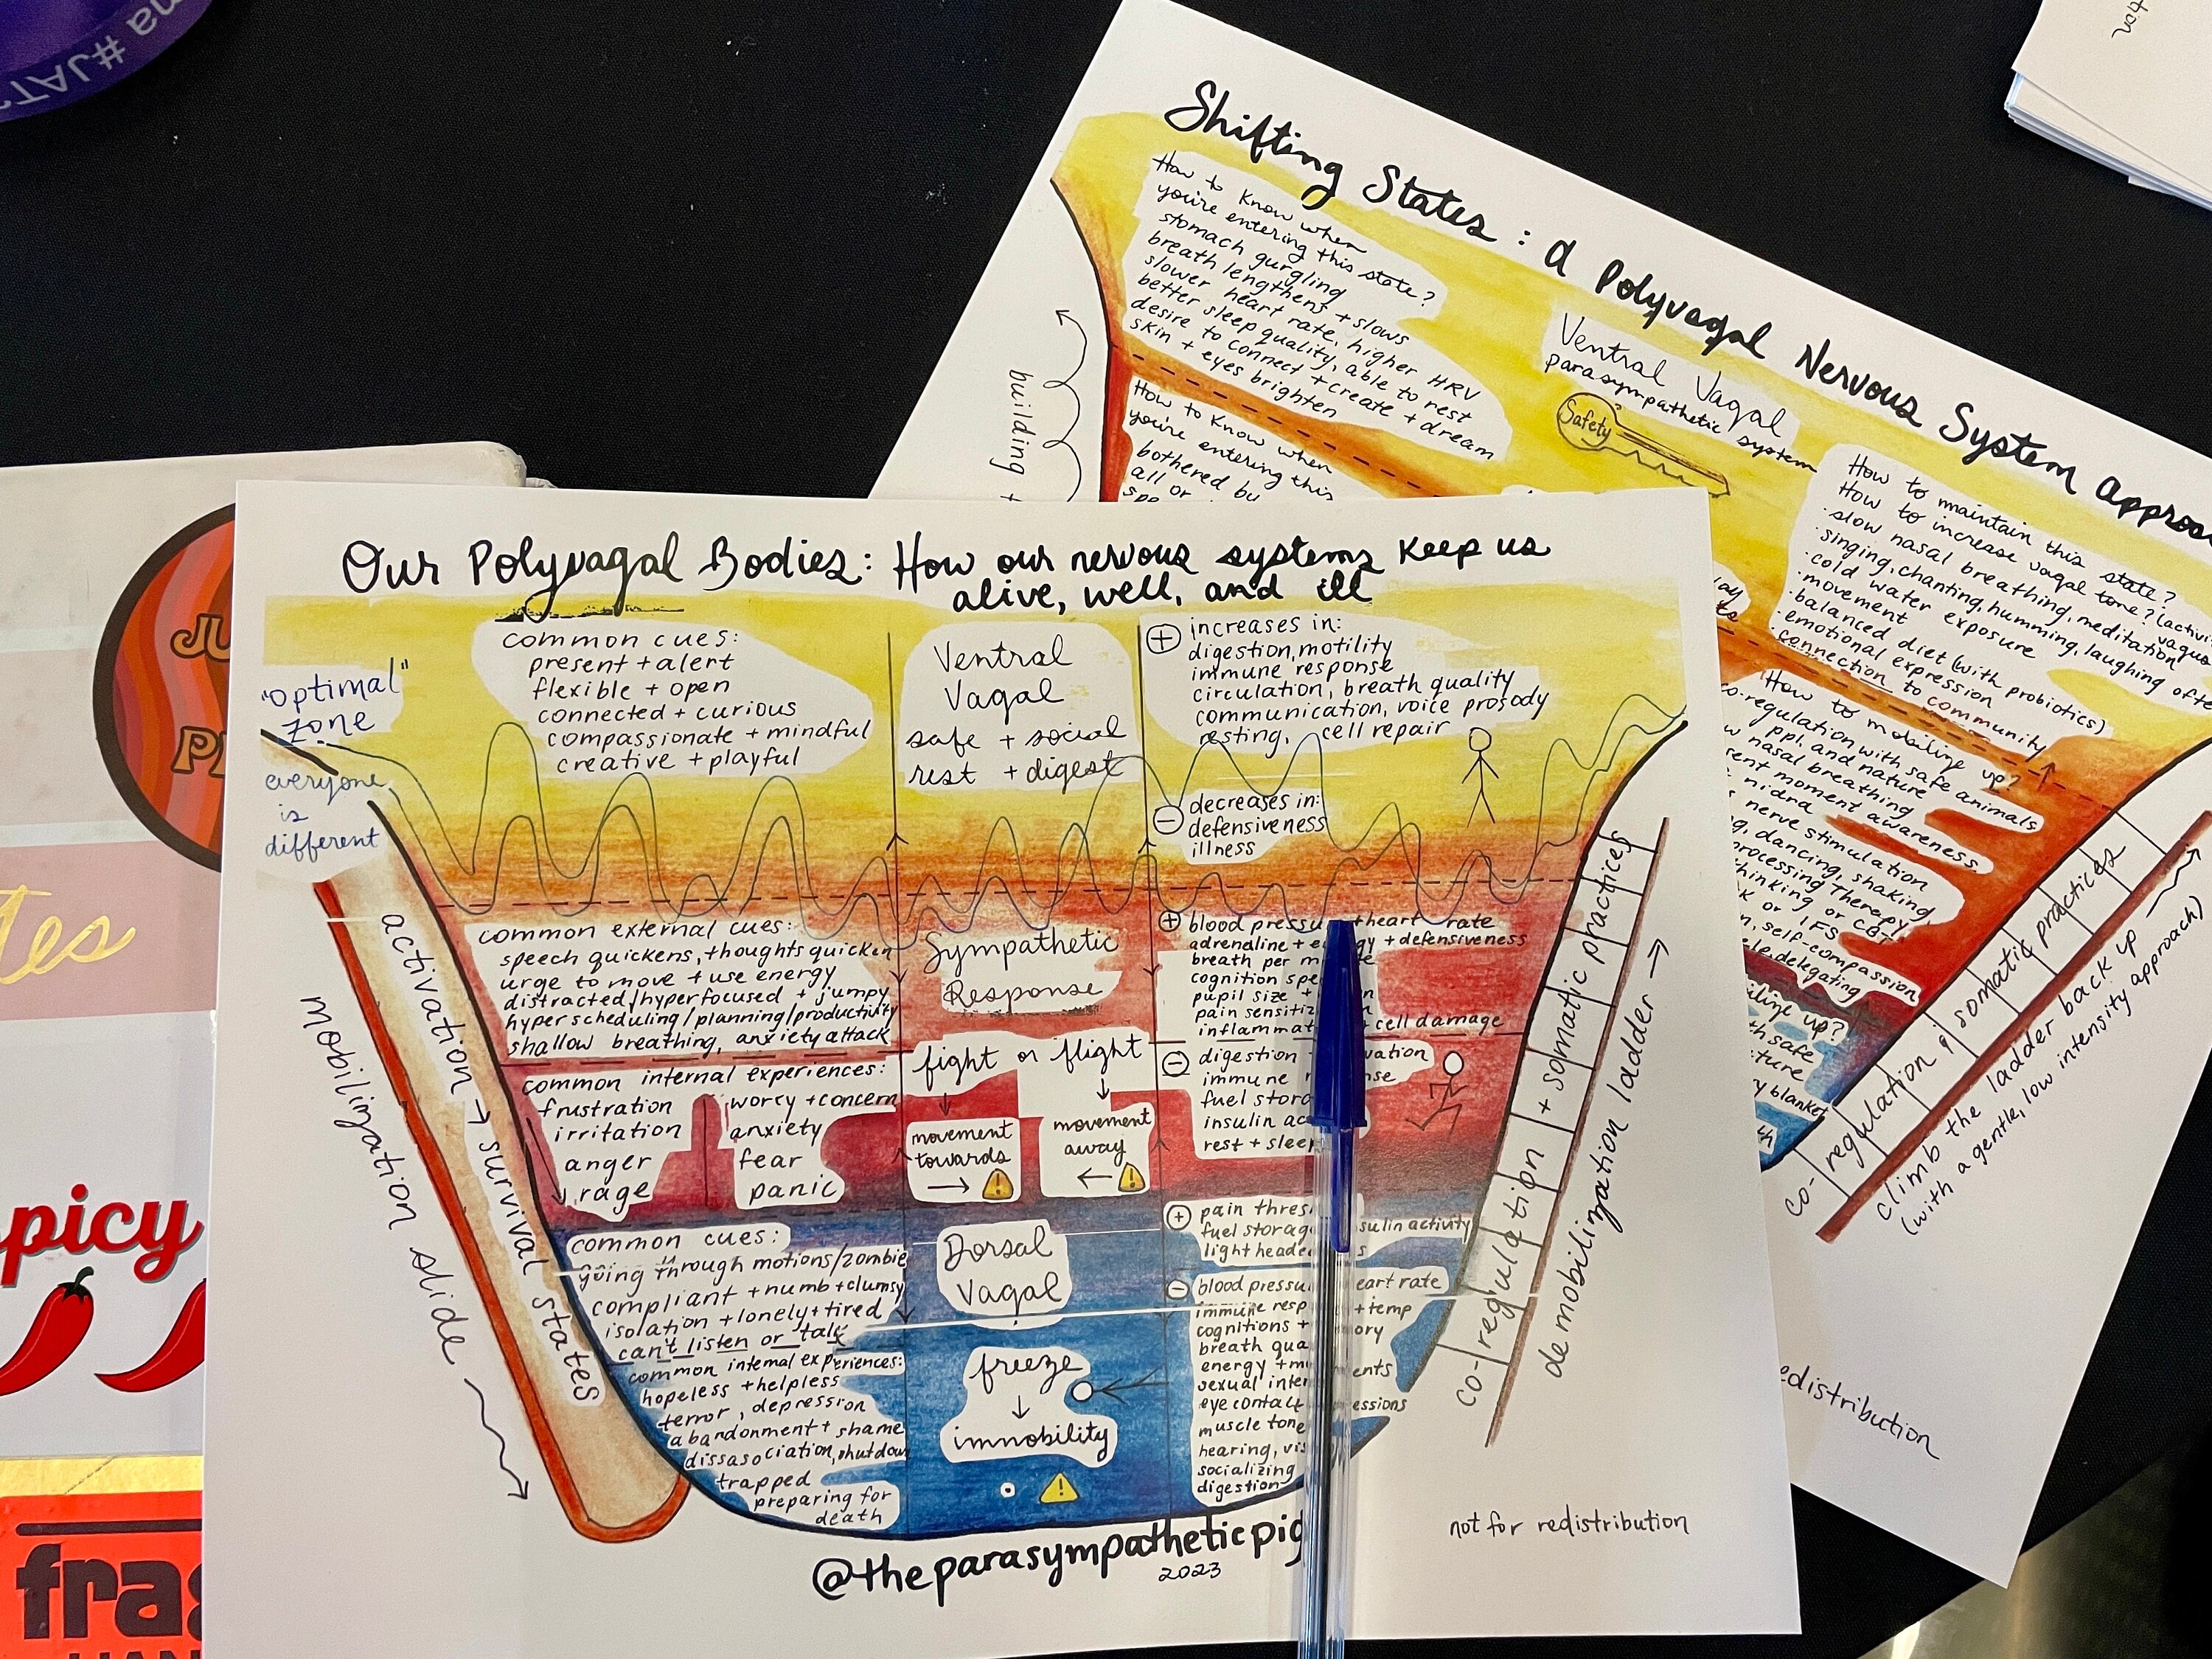 #JAT
Shifting States: a Polyvagal Nervous System approa
How to know when
you're entering this state?
stomach gurgling
breath lengthens + slows
slower heart rate, higher HRV
better sleep quality, able to rest
desire to connect + create + dream
skin + eyes brighten
Ventral Vagal
parasympathetic system
Safety
How to maintain this state?
How to increase vagal tone?
slow nasal breathing, meditation
singing, chanting, humming, laughing
cold water exposure
movement
balanced diet (with probiotics)
emotional expression
connection to community
How to know when
you're entering this
bothered by
all or
building
How to mobilize up?
co-regulation with safe animals
ppl, and nature
nasal breathing
moment awareness
nidra
nerve stimulation
dancing, shaking
processing therapy
thinking or CBT
or IFS
self-compassion
delegating
up?
safe
blanket
co-regulation + somatic practices
climb the ladder back up
(with a gentle, low intensity approach)
edistribution
Our Polyvagal Bodies: How our nervous systems keep us
alive, well, and ill
"optimal"
zone
everyone
is
different
common cues:
present + alert
flexible + open
connected + curious
compassionate + mindful
creative + playful
Ventral
Vagal
safe + social
rest + digest
+ increases in:
digestion, motility
immune response
circulation, breath quality
communication, voice prosody
resting, cell repair
- decreases in:
defensiveness
illness
activation → survival states
mobilization slide
common external cues:
speech quickens, thoughts quicken
urge to move + use energy
distracted/hyperfocused + jumpy
hyper scheduling/planning/productivity
shallow breathing, anxiety attack
common internal experiences:
frustration
irritation
anger
rage
worry + concern
anxiety
fear
panic
Sympathetic
Response
fight or flight
movement
towards
movement
away
+ blood pressu + heart rate
adrenaline + e gy + defensiveness
breath per m
cognition spe
pupil size +
pain sensitiz
inflammat cell damage
- digestion vation
immune
fuel stora
insulin ac
rest + sleep
common cues:
going through motions/zombie
compliant + numb + clumsy
isolation + lonely + tired
can't listen or talk
common internal experiences:
hopeless + helpless
terror, depression
abandonment + shame
dissasociation, shutdown
trapped
preparing for
death
Dorsal
Vagal
freeze
immobility
+ pain thres
fuel storag sulin activity
light heade
- blood pressu eart rate
immune resp + temp
cognitions + ory
breath qua
energy + m ents
sexual inter
eye contact essions
muscle tone
hearing, vis
socializing
digestion
co-regulation + somatic practices
demobilization ladder →
@theparasympatheticpig
2023
not for redistribution
tes
picy
fra
HAN